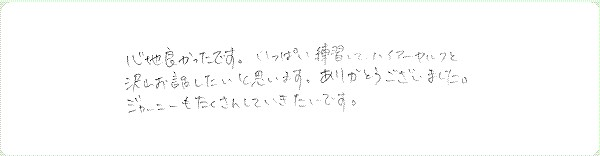 心地良かったです。いっぱい練習して、ハイアーセルフと
沢山お話したいと思います。ありがとうございました。
ジャーニーもたくさんしていきたいです。